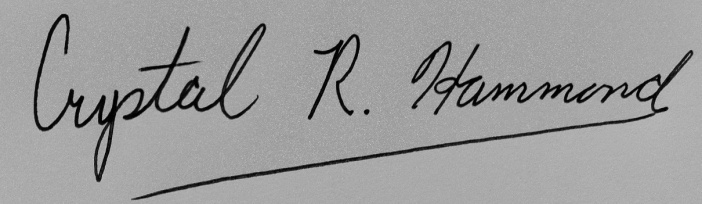 Crystal R. Hammond